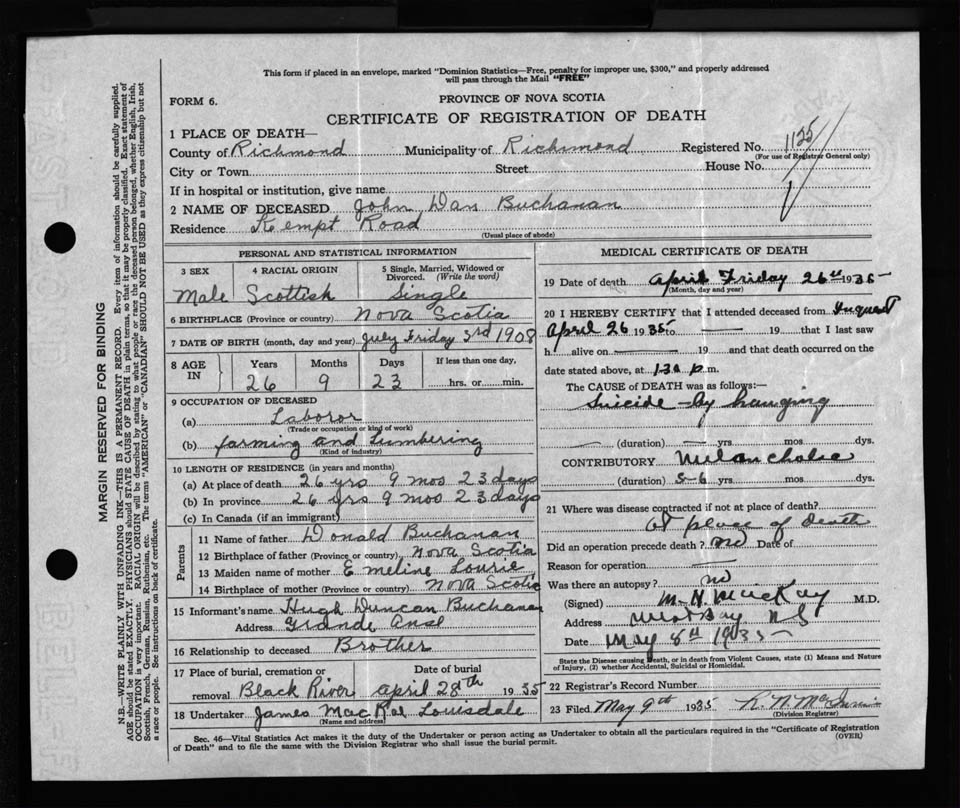 This form if placed in an envelope, marked "Dominion Statistics—Free, penalty for improper use, $300," and properly addressed
will pass through the Mail "FREE"
FORM 6.
PROVINCE OF NOVA SCOTIA
CERTIFICATE OF REGISTRATION OF DEATH
1 PLACE OF DEATH—
County of Richmond Municipality of Richmond Registered No. 1125
(For use of Registrar General only)
City or Town Street House No.
If in hospital or institution, give name
2 NAME OF DECEASED John Dan Buchanan
Residence Kempt Road
(Usual place of abode)
PERSONAL AND STATISTICAL INFORMATION
3 SEX 4 RACIAL ORIGIN 5 Single, Married, Widowed or
Divorced. (Write the word)
Male Scottish Single
6 BIRTHPLACE (Province or country) Nova Scotia
7 DATE OF BIRTH (month, day and year) July Friday 3rd 1908
8 AGE IN Years Months Days If less than one day,
26 9 23 hrs. or min.
9 OCCUPATION OF DECEASED
(a) Laboror
(Trade or occupation or kind of work)
(b) farming and Lumbering
(Kind of industry)
10 LENGTH OF RESIDENCE (in years and months)
(a) At place of death 26 yrs 9 mos 23 days
(b) In province 26 yrs 9 mos 23 days
(c) In Canada (if an immigrant)
Parents
11 Name of father Donald Buchanan
12 Birthplace of father (Province or country) Nova Scotia
13 Maiden name of mother Emeline Lourie
14 Birthplace of mother (Province or country) Nova Scotia
15 Informant's name Hugh Duncan Buchanan
Address Grande Anse
16 Relationship to deceased Brother
17 Place of burial, cremation or Date of burial
removal Black River april 28th 1935
18 Undertaker James MacRae Louisdale
(Name and address)
MEDICAL CERTIFICATE OF DEATH
19 Date of death April Friday 26th 1935
(Month, day and year)
20 I HEREBY CERTIFY that I attended deceased from Inquest
April 26 1935 to 19 that I last saw
h alive on 19 and that death occurred on the
date stated above, at 1.30 p.m.
The CAUSE of DEATH was as follows:—
Suicide - by hanging
(duration) yrs. mos. dys.
CONTRIBUTORY Melancholia
(duration) 5-6 yrs. mos. dys.
21 Where was disease contracted if not at place of death?
at place of death
Did an operation precede death? no Date of
Reason for operation
Was there an autopsy? no
(Signed) M. H. McKay M.D.
Address West Bay NS
Date May 8th 1935
State the Disease causing Death, or in death from Violent Causes, state (1) Means and Nature
of Injury, (2) whether Accidental, Suicidal or Homicidal.
22 Registrar's Record Number
23 Filed May 9th 1935
(Division Registrar)
Sec. 46—Vital Statistics Act makes it the duty of the Undertaker or person acting as Undertaker to obtain all the particulars required in the "Certificate of Registration
of Death" and to file the same with the Division Registrar who shall issue the burial permit. (OVER)
MARGIN RESERVED FOR BINDING
N.B.—WRITE PLAINLY WITH UNFADING INK—THIS IS A PERMANENT RECORD. Every item of information should be carefully supplied.
AGE should be stated EXACTLY. PHYSICIANS should STATE CAUSE OF DEATH in plain terms, so that it may be properly classified. Exact statement of
OCCUPATION is very important. RACIAL ORIGIN will be described by stating to what people or race the deceased person belonged, whether English, Irish,
Scottish, French, German, Russian, Ruthenian, etc. The terms "AMERICAN" or "CANADIAN" SHOULD NOT BE USED as they express citizenship but not
a race or people. See instructions on back of certificate.